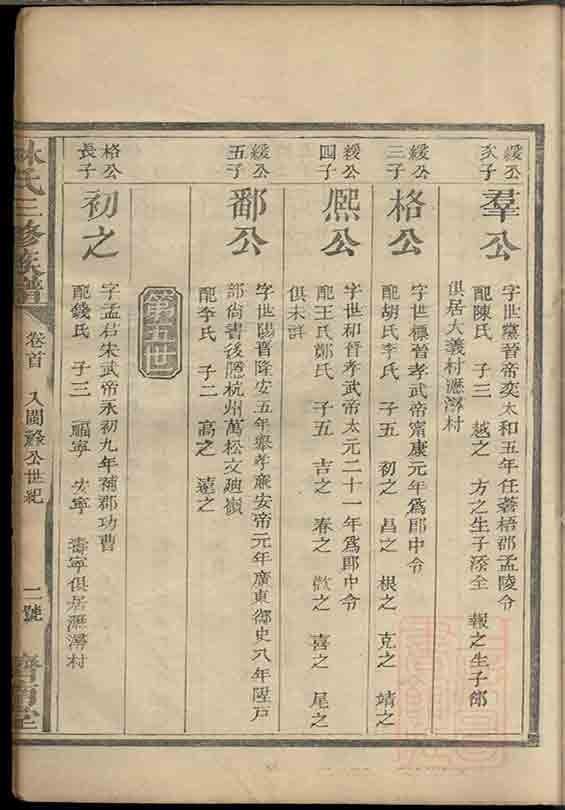 綏公
次子
羣公
字世黨晉帝奕太和五年任蒼梧郡孟陵令
配陳氏 子三 越之 方之生子添全 報之生子郎
俱居大義村㵲潯村
綏公
三子
格公
字世標晉孝武帝甯康元年爲郎中令
配胡氏李氏 子五 初之 昌之 根之 克之 靖之
綏公
四子
熈公
字世和晉孝武帝太元二十一年爲郎中令
配王氏鄭氏 子五 吉之 春之 歡之 喜之 尾之
俱未詳
綏公
五子
鄱公
字世陽晉隆安五年舉孝廉安帝元年廣東御史八年陞戶
部尚書後隱杭州萬松文廸嶺
配李氏 子二 高之 遠之
第五世
格公
長子
初之
字孟君宋武帝永初九年補郡功曹
配錢氏 子三 福寧 安寧 壽寧俱居㵲潯村
林氏三修族譜
卷首 入閩祿公世紀
二號
濟南堂